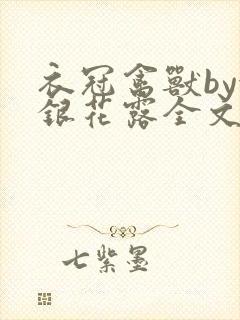 衣冠禽獸by
銀花露全文
七紫墨